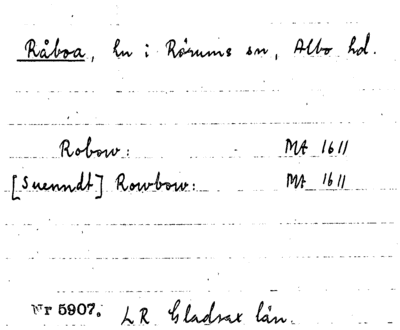 Råboa, hu i Rörums sn, Albo hd.
Robow: MA 1611
[Suenndt] Rowbow: MA 1611
Nr 5907. LR Gladsax län.